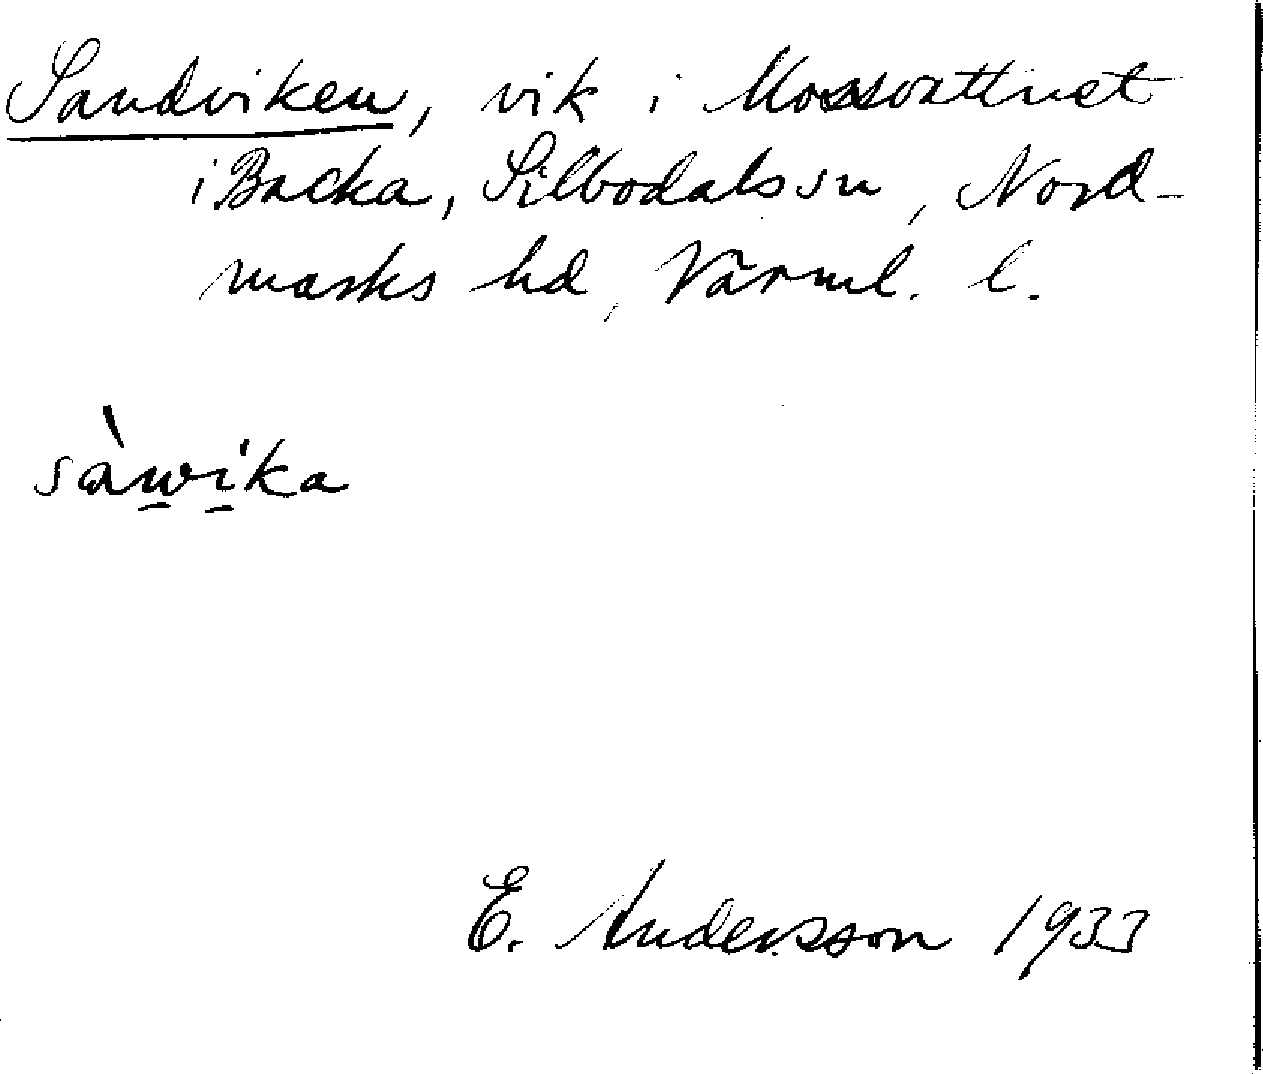 Sandviken, vik i Mossvattnet
i Backa, Silbodals sn, Nord-
marks hd, Värml. l.
sàwika
E. Andersson 1933